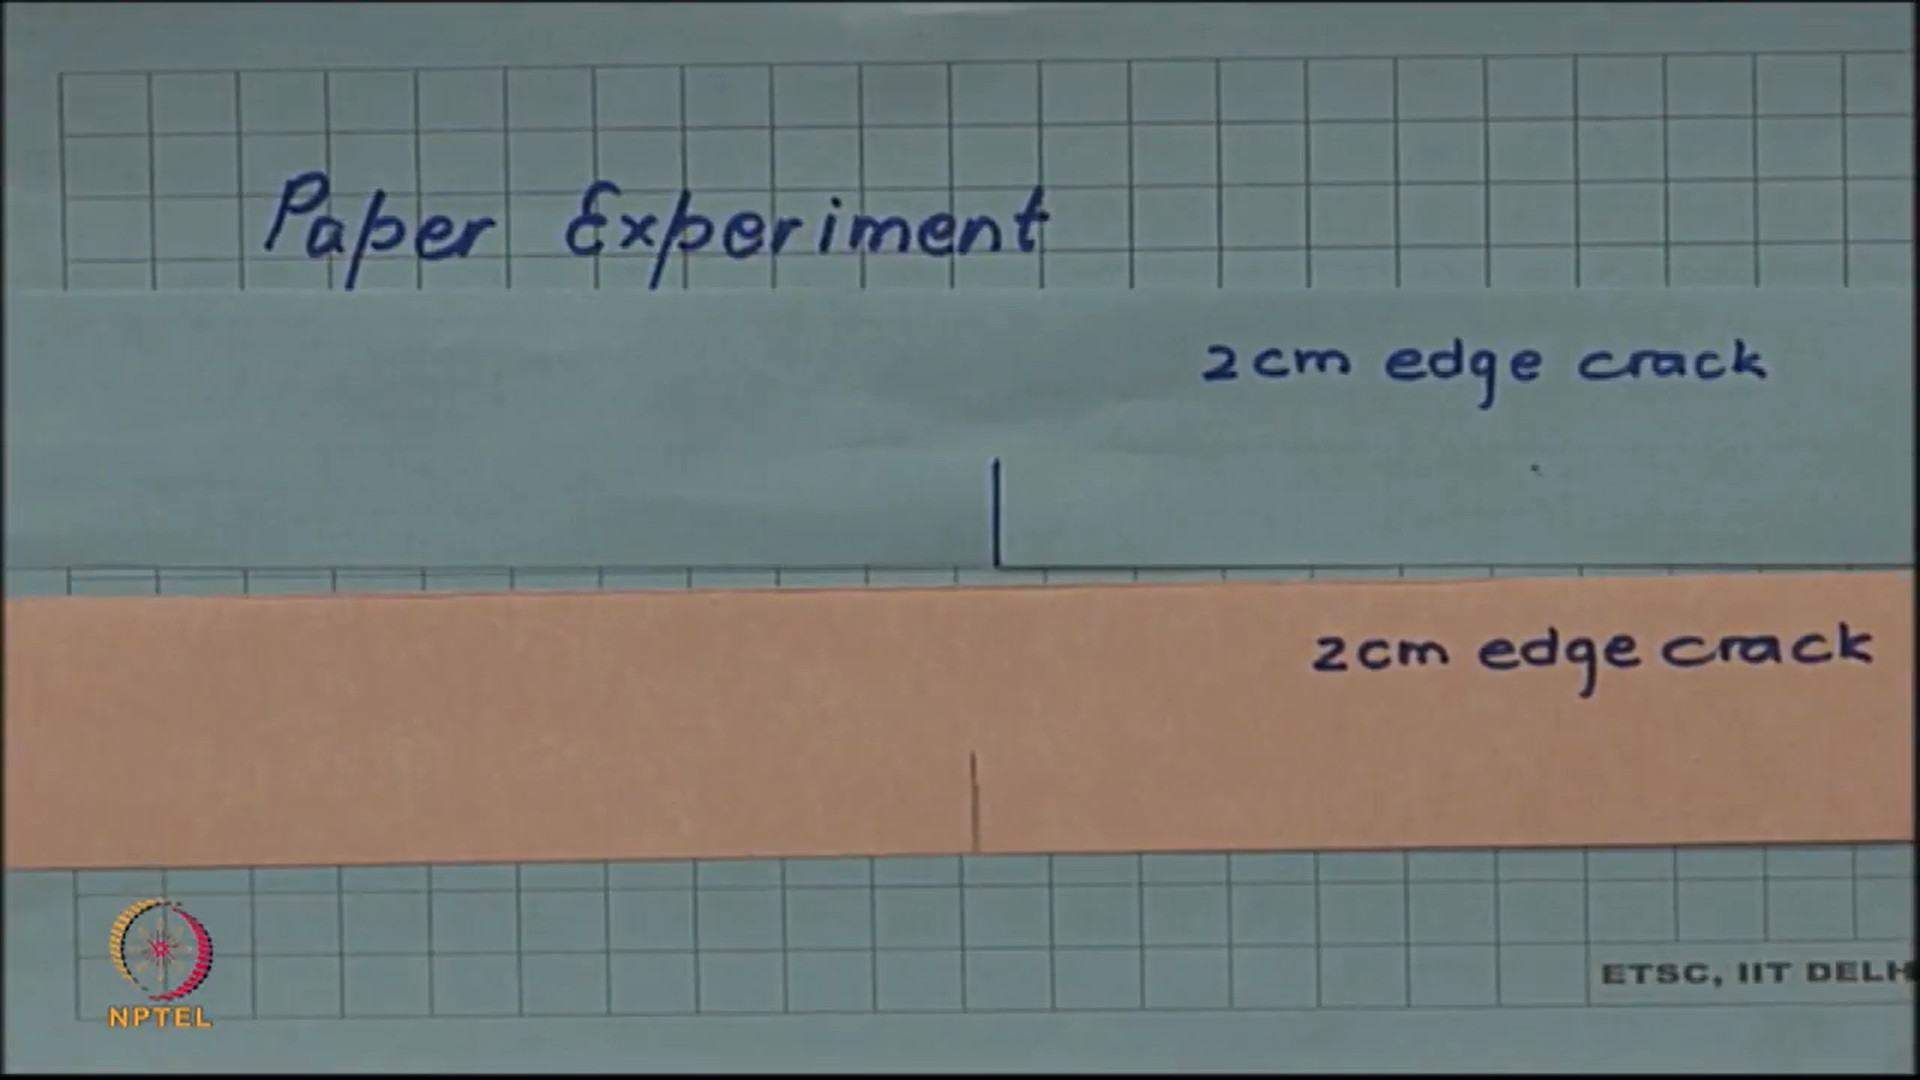 Paper Experiment
2cm edge crack
2cm edge crack
ETSC, IIT DELH
NPTEL